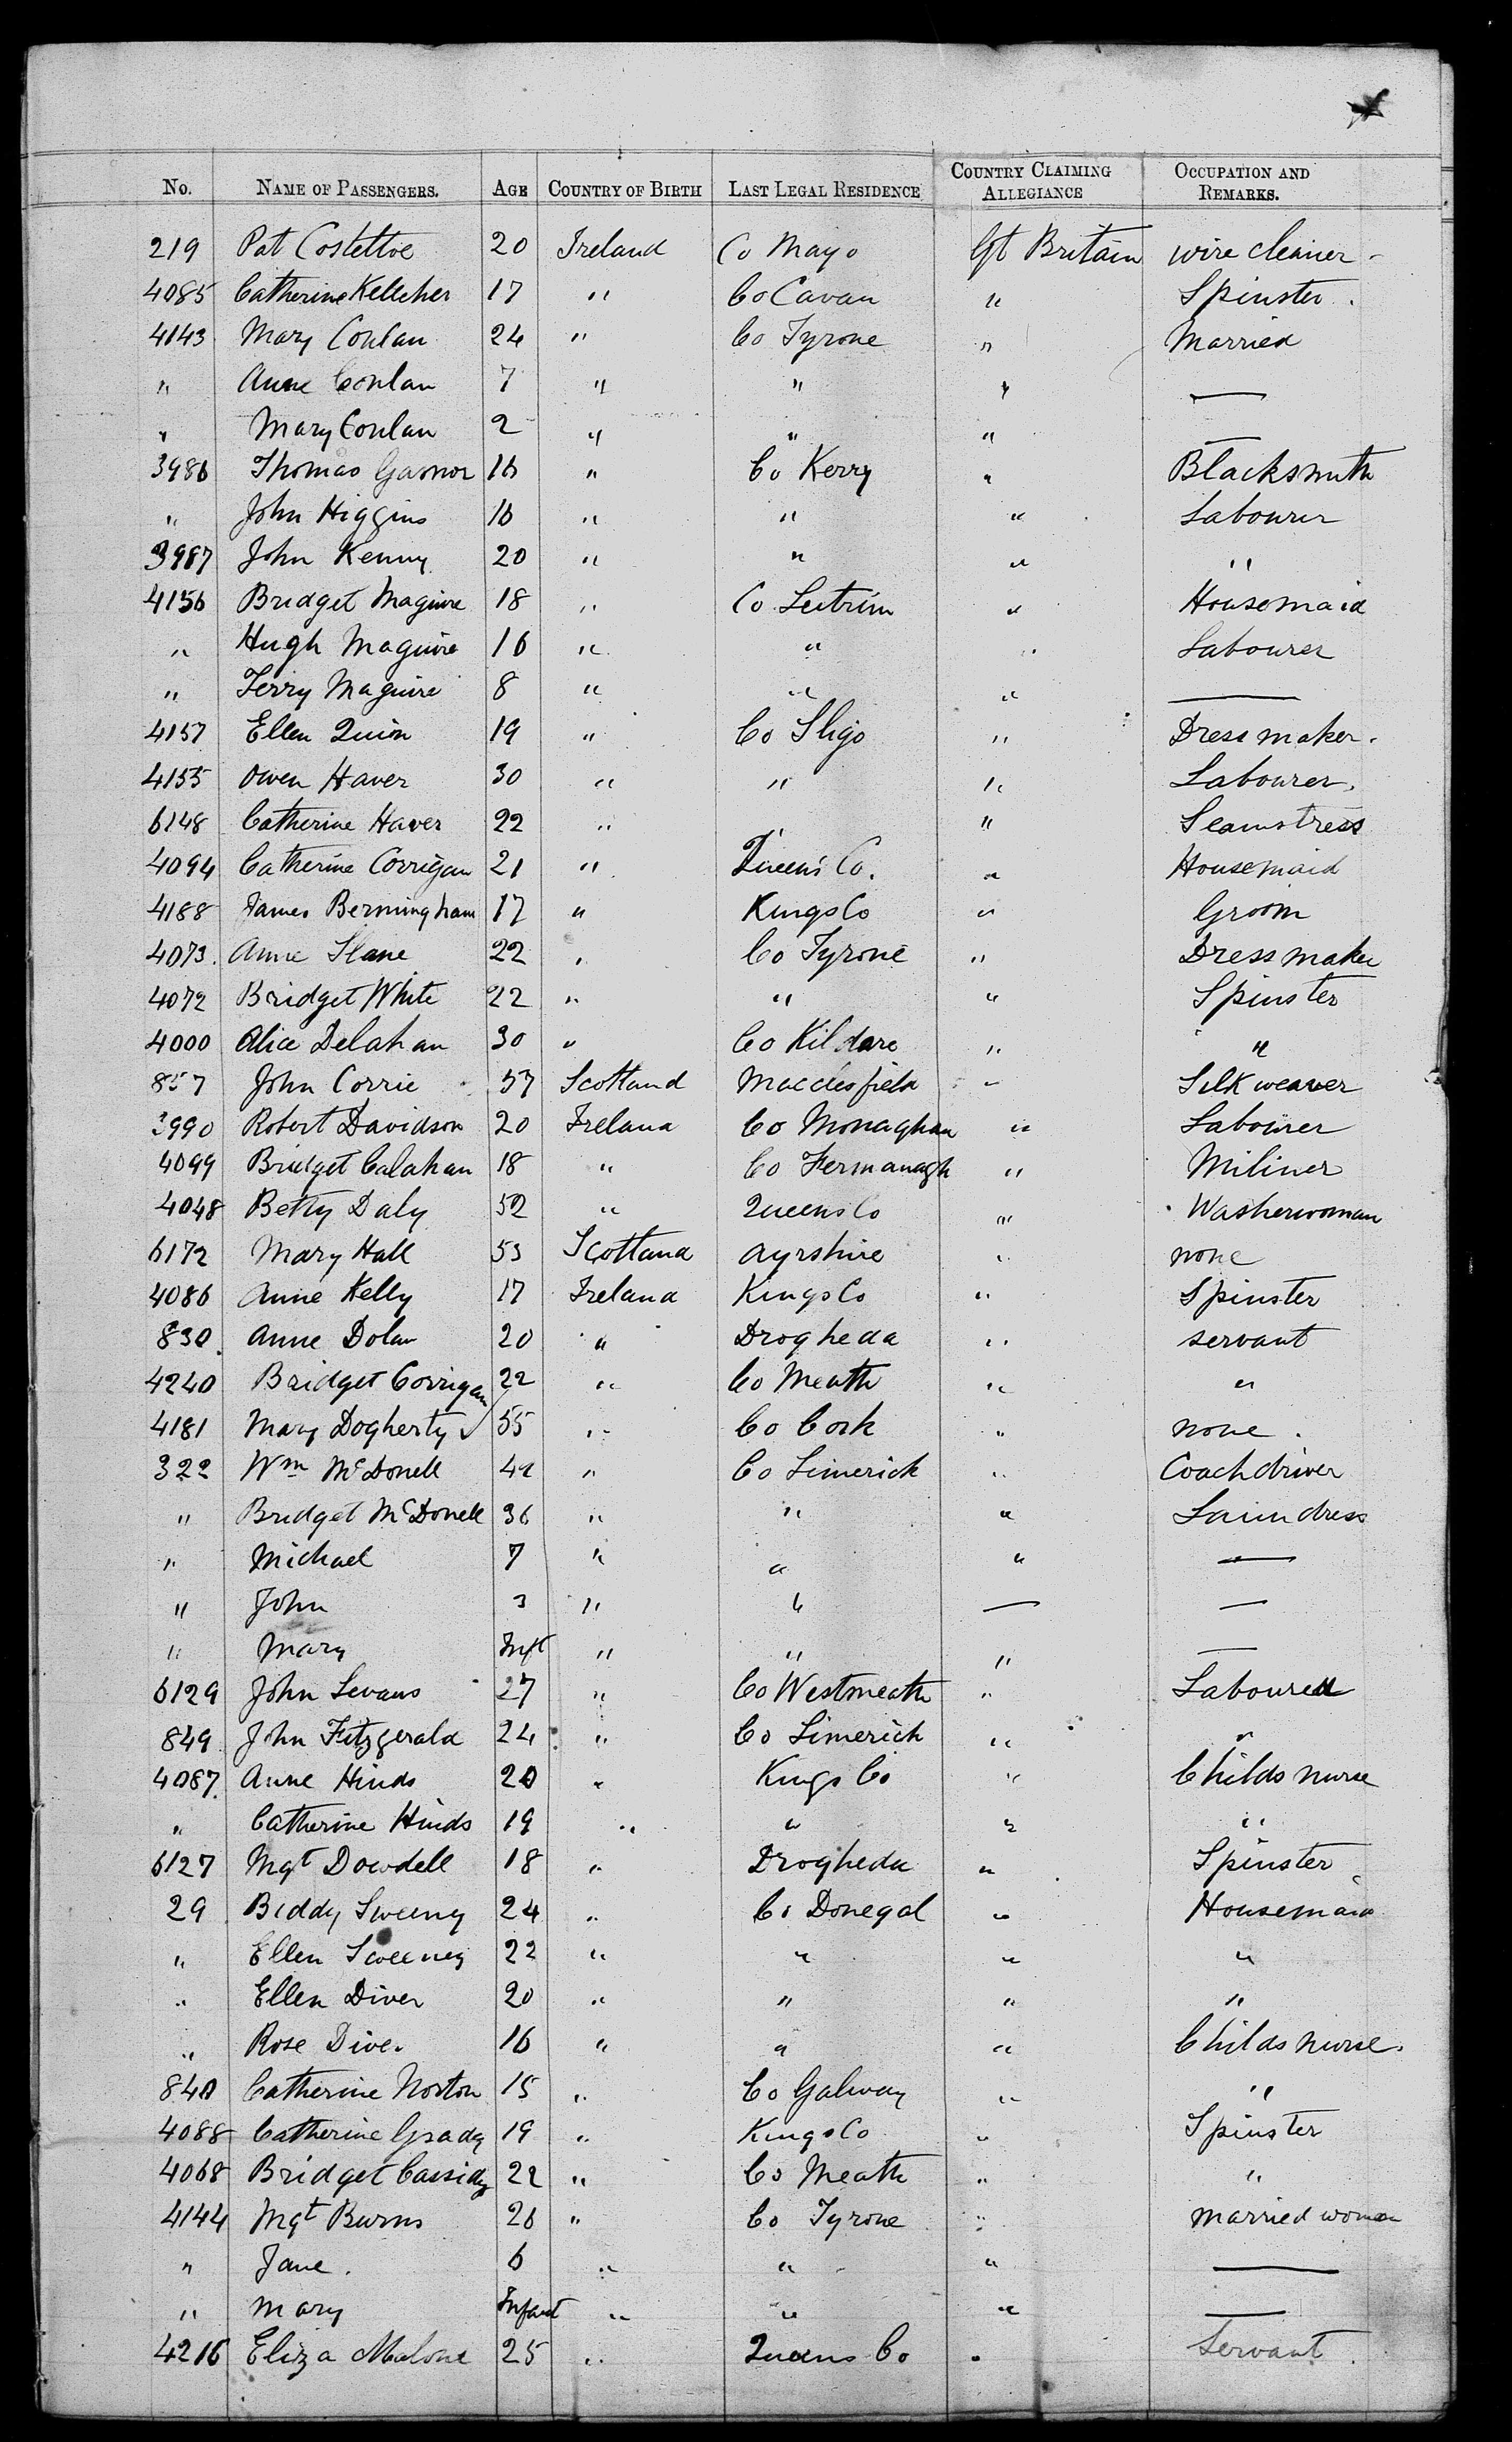 No. NAME OF PASSENGERS. AGE COUNTRY OF BIRTH LAST LEGAL RESIDENCE COUNTRY CLAIMING ALLEGIANCE OCCUPATION AND REMARKS.
219 Pat Costelloe 20 Ireland Co Mayo Gt Britain wire cleaner
4085 Catherine Kelleher 17 " Co Cavan " Spinster
4143 Mary Conlan 24 " Co Tyrone " Married
" Anne Conlan 7 " " " —
" Mary Conlan 2 " " " —
3986 Thomas 16 " Co Kerry " Blacksmith
" John Higgins 16 " " " Labourer
3987 John Kenny 20 " " " "
4156 Bridget Maguire 18 " Co Leitrim " Housemaid
" Hugh Maguire 16 " " " Labourer
" Terry Maguire 8 " " " —
4157 Ellen Quinn 19 " Co Sligo " Dress maker.
4155 Owen Haver 30 " " " Labourer.
6148 Catherine Haver 22 " " " Seamstress
4094 Catherine Corrigan 21 " Queens Co. " Housemaid
4188 James Bermingham 17 " Kings Co " Groom
4073. Anne Slane 22 " Co Tyrone " Dress maker
4072 Bridget White 22 " " " Spinster
4000 Alice Delahan 30 " Co Kildare " "
857 John Corrie 57 Scotland Macclesfield " Silk weaver
3990 Robert Davidson 20 Ireland Co Monaghan " Labourer
4099 Bridget Calahan 18 " Co Fermanagh " Miliner
4048 Betty Daly 52 " Queens Co " Washerwoman
6172 Mary Hall 53 Scotland Ayrshire " none
4086 Anne Kelly 17 Ireland Kings Co " Spinster
830. Anne Dolan 20 " Drogheda " servant
4240 Bridget Corrigan 22 " Co Meath " "
4181 Mary Dogherty 55 " Co Cork " none.
322 Wm McDonell 42 " Co Limerick " Coach driver
" Bridget McDonell 36 " " " Laundress
" Michael 7 " " " —
" John 3 " " — —
" Mary Inft " " " —
6129 John Levans 27 " Co Westmeath " Labourer
849 John Fitzgerald 24 " Co Limerick " "
4087. Anne Hinds 20 " Kings Co " Childs nurse
" Catherine Hinds 19 " " " "
6127 Mgt Dowdell 18 " Drogheda " Spinster
29 Biddy Sweeny 24 " Co Donegal " Housemaid
" Ellen Sweeney 22 " " " "
" Ellen Diver 20 " " " "
" Rose Diver 16 " " " Childs nurse.
840 Catherine Norton 15 " Co Galway " "
4088 Catherine Grady 19 " Kings Co " Spinster
4068 Bridget Cassidy 22 " Co Meath " "
4144 Mgt Burns 26 " Co Tyrone " married woman
" Jane. 6 " " " —
" Mary Infant " " " —
4216 Eliza Malone 25 " Queens Co " Servant